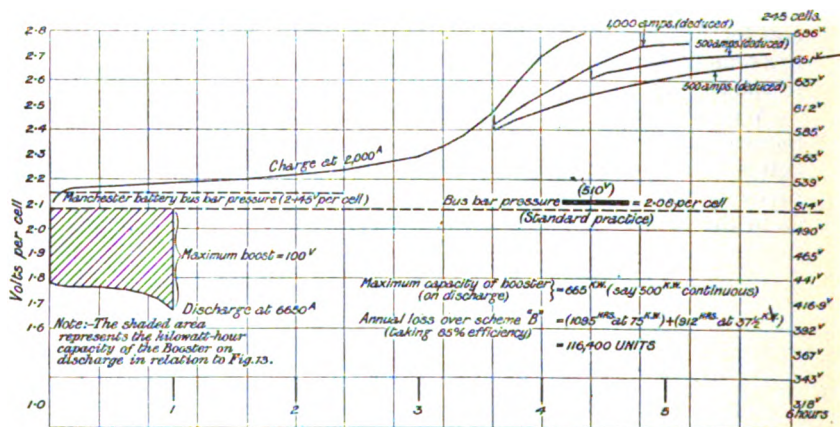 1,000 amps.(deduced)
245 cells.
500 amps.(deduced)
500 amps.(deduced)
Volts per cell
2·8
2·7
2·6
2·5
2·4
2·3
2·2
2·1
2·0
1·9
1·8
1·7
1·6
1·0
686V
661V
637V
612V
585V
563V
539V
514V
490V
465V
441V
416·9V
392V
367V
343V
318V
Charge at 2,000A
Manchester battery bus bar pressure (2·145V per cell)
(510V)
Bus bar pressure = 2·08 per cell
(Standard practice)
Maximum boost = 100V
Discharge at 6650A
Note:-The shaded area
represents the kilowatt-hour
capacity of the Booster on
discharge in relation to Fig.13.
Maximum capacity of booster
(on discharge) } = 665 K.W. (say 500 K.W. continuous)
Annual loss over scheme "B"
(taking 85% efficiency) = (1095 HRS. at 75 K.W.) + (912 HRS. at 37½ K.W.)
= 116,400 UNITS
1
2
3
4
5
6 hours